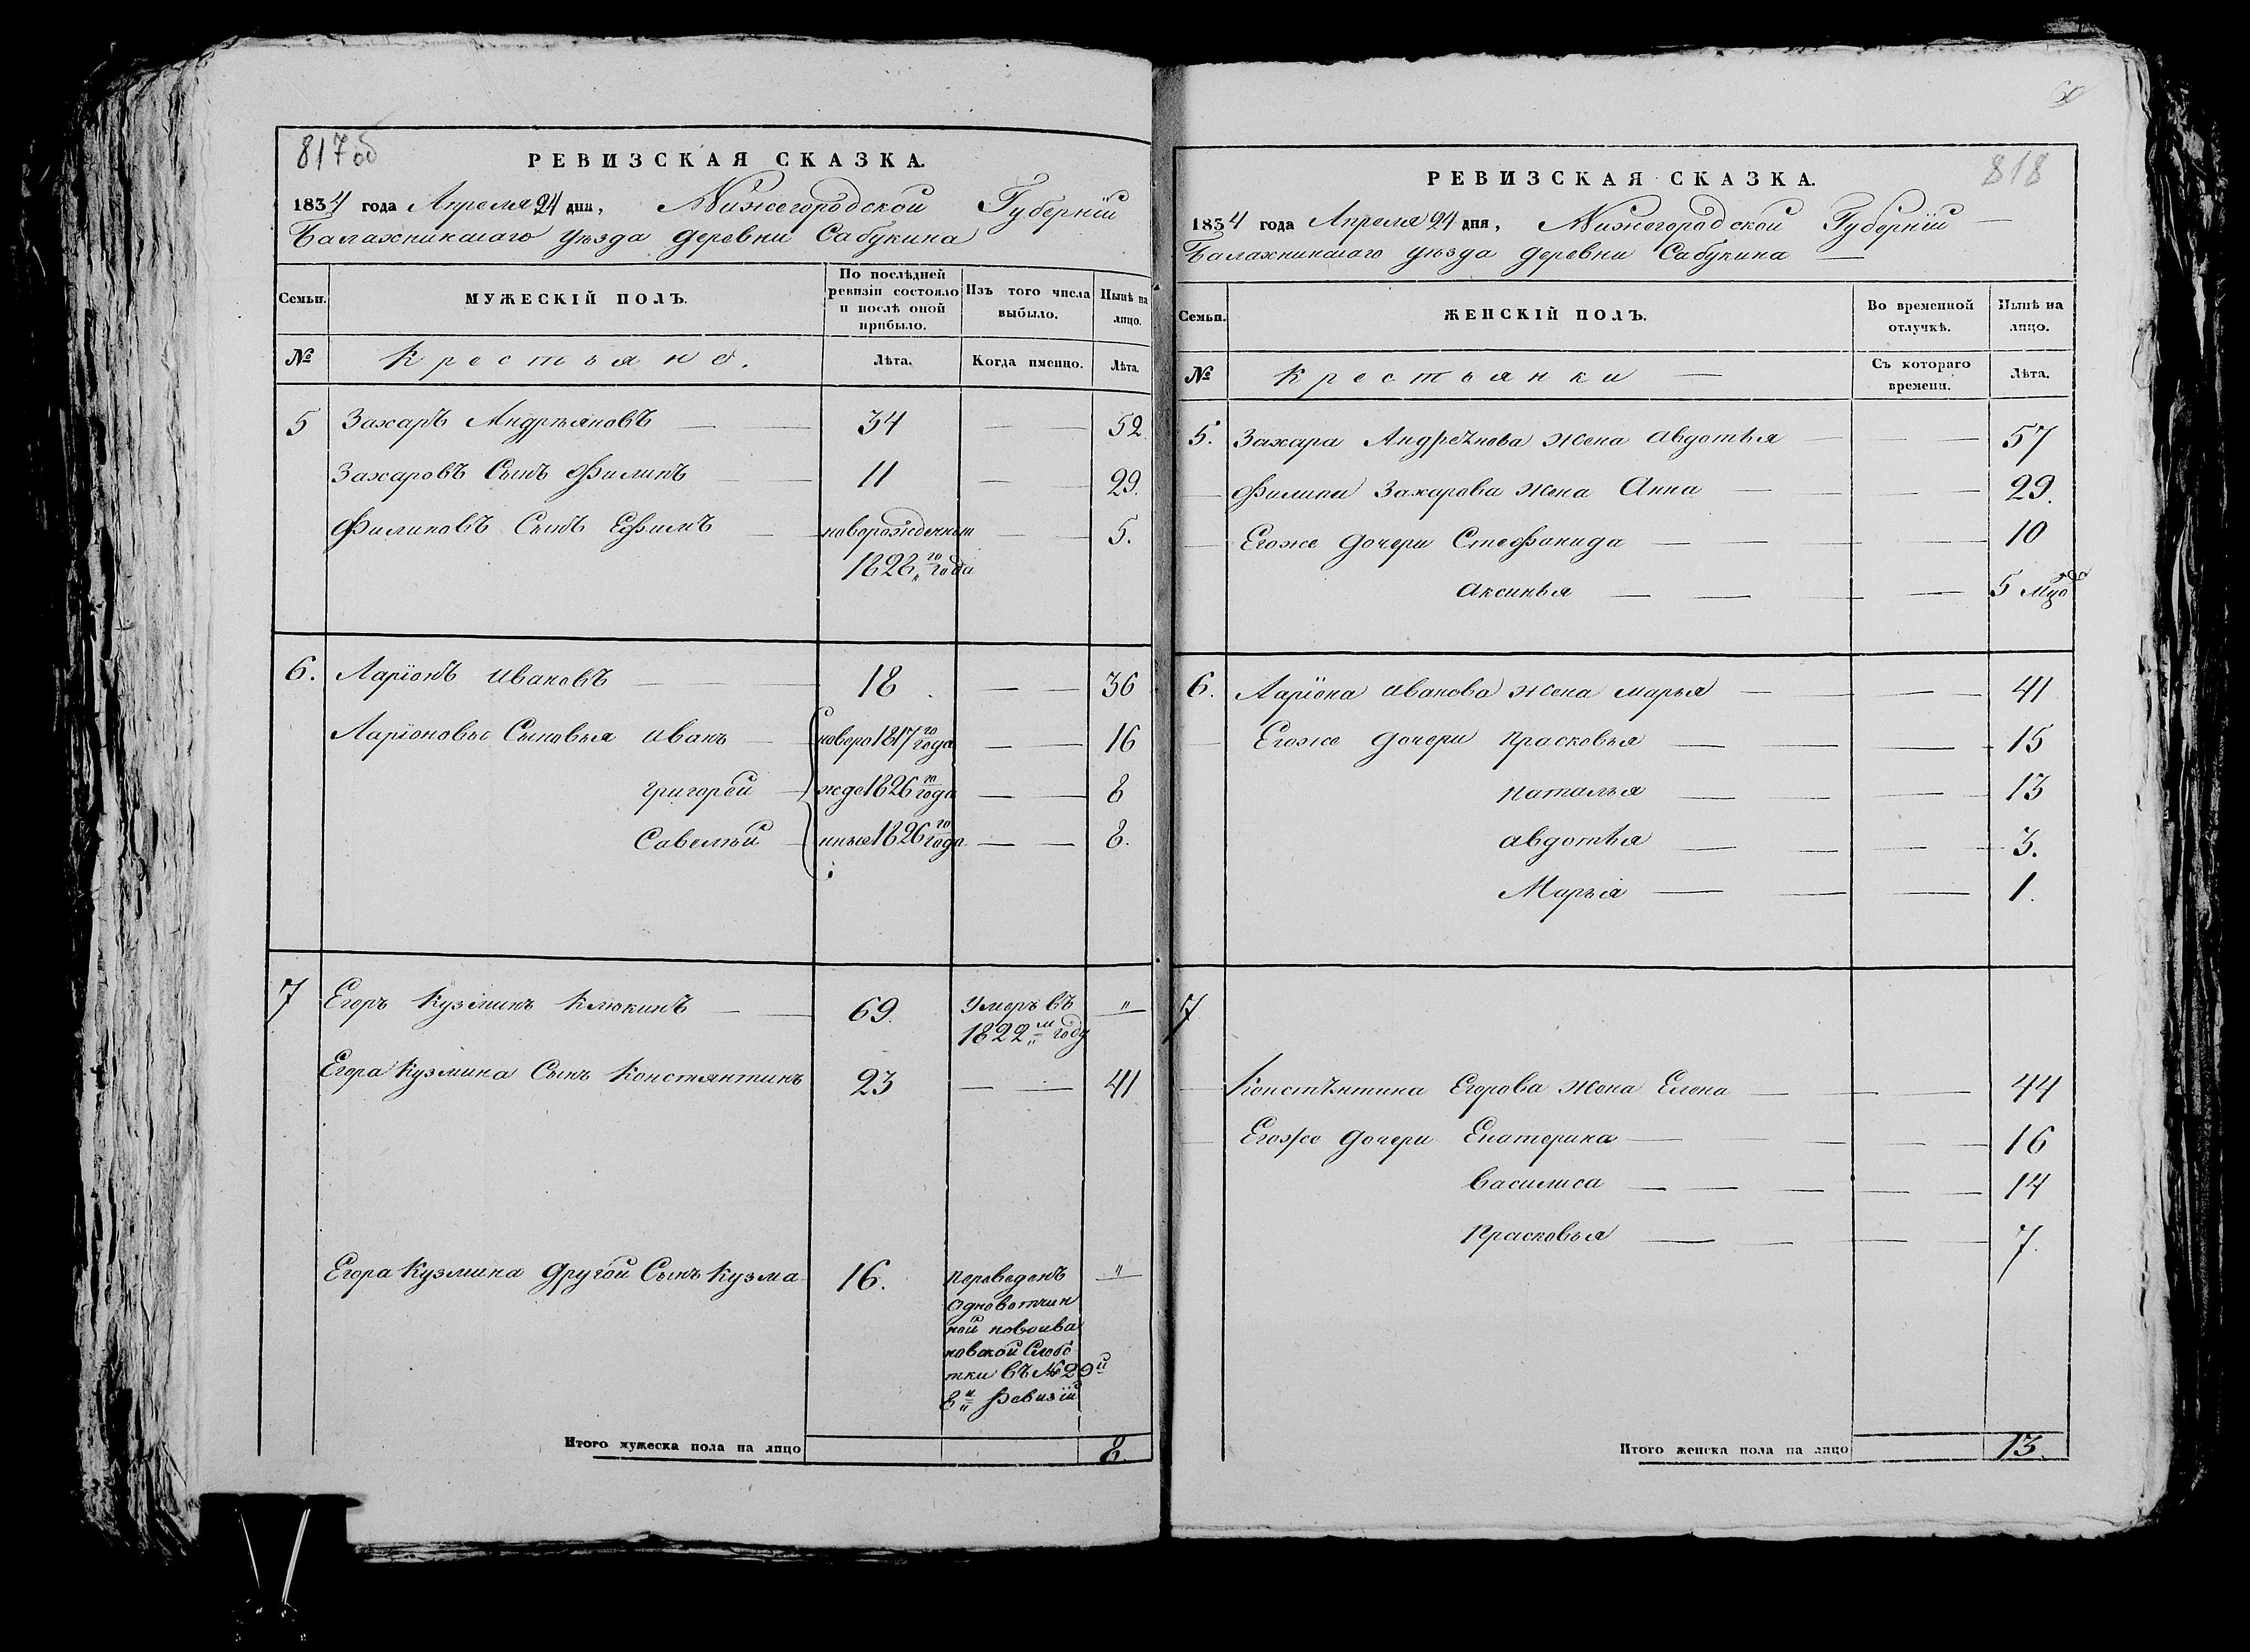 817 об
РЕВИЗСКАЯ СКАЗКА.
1834 года Апреля 24 дня, Нижегородской Губернїи
Балахнинскаго уѣзда деревни Сабукина
Семьи. МУЖЕСКІЙ ПОЛЪ. По послѣдней ревизіи состояло и послѣ оной прибыло. Изъ того числа выбыло. Нынѣ на лицо.
№ Крестьяне. Лѣта. Когда именно. Лѣта.
5 Захаръ Андреяновъ — — 34 — — 52.
Захаровъ Сынъ Филипъ — — 11 — — 29.
Филиповъ Сынъ Ефимъ — новорожденный — — 5.
1828го года
6. Ларїонъ Ивановъ — — 18. — — 36
Ларїоновы Сыновья Иванъ — новоро 1817го года — — 16
Григорей — жде 1826го года — — 8
Савелѣй — нные 1826го года — — 8.
7 Егоръ Кузминъ Клюкинъ — — 69. Умеръ въ "
1822м году
Егора Кузмина Сынъ Констянтинъ 23 — — 41
Егора Кузмина другой Сынъ Кузма 16. переведенъ "
одновотчин
ной новоива
новской Слобо
тки въ № 29й
8й Ревизїи
Итого мужеска пола на лицо 8.
818
РЕВИЗСКАЯ СКАЗКА.
1834 года Апреля 24 дня, Нижегородской Губернїи —
Балахнинскаго уѣзда деревни Сабукина —
Семьи. ЖЕНСКІЙ ПОЛЪ. Во временной отлучкѣ. Нынѣ на лицо.
№ Крестьянки — Съ котораго времени. Лѣта.
5. Захара Андреянова жена Авдотья — — — 57
Филипа Захарова жена Анна — — — — 29.
Егоже дочери Стефанида — — — — 10
Аксинья — — — — 5 мцо
6. Ларїона Иванова жена Марья — — — — 41
Егоже дочери Прасковья — — — — 15
Наталья — — — — 13
Авдотья — — — — 3.
Марья — — — 1.
7
Констянтина Егорова жена Елена — — — 44
Егоже дочери Екатерина — — — — 16
Василиса — — — — — 14
Прасковья — — — — 7.
Итого женска пола на лицо 13.